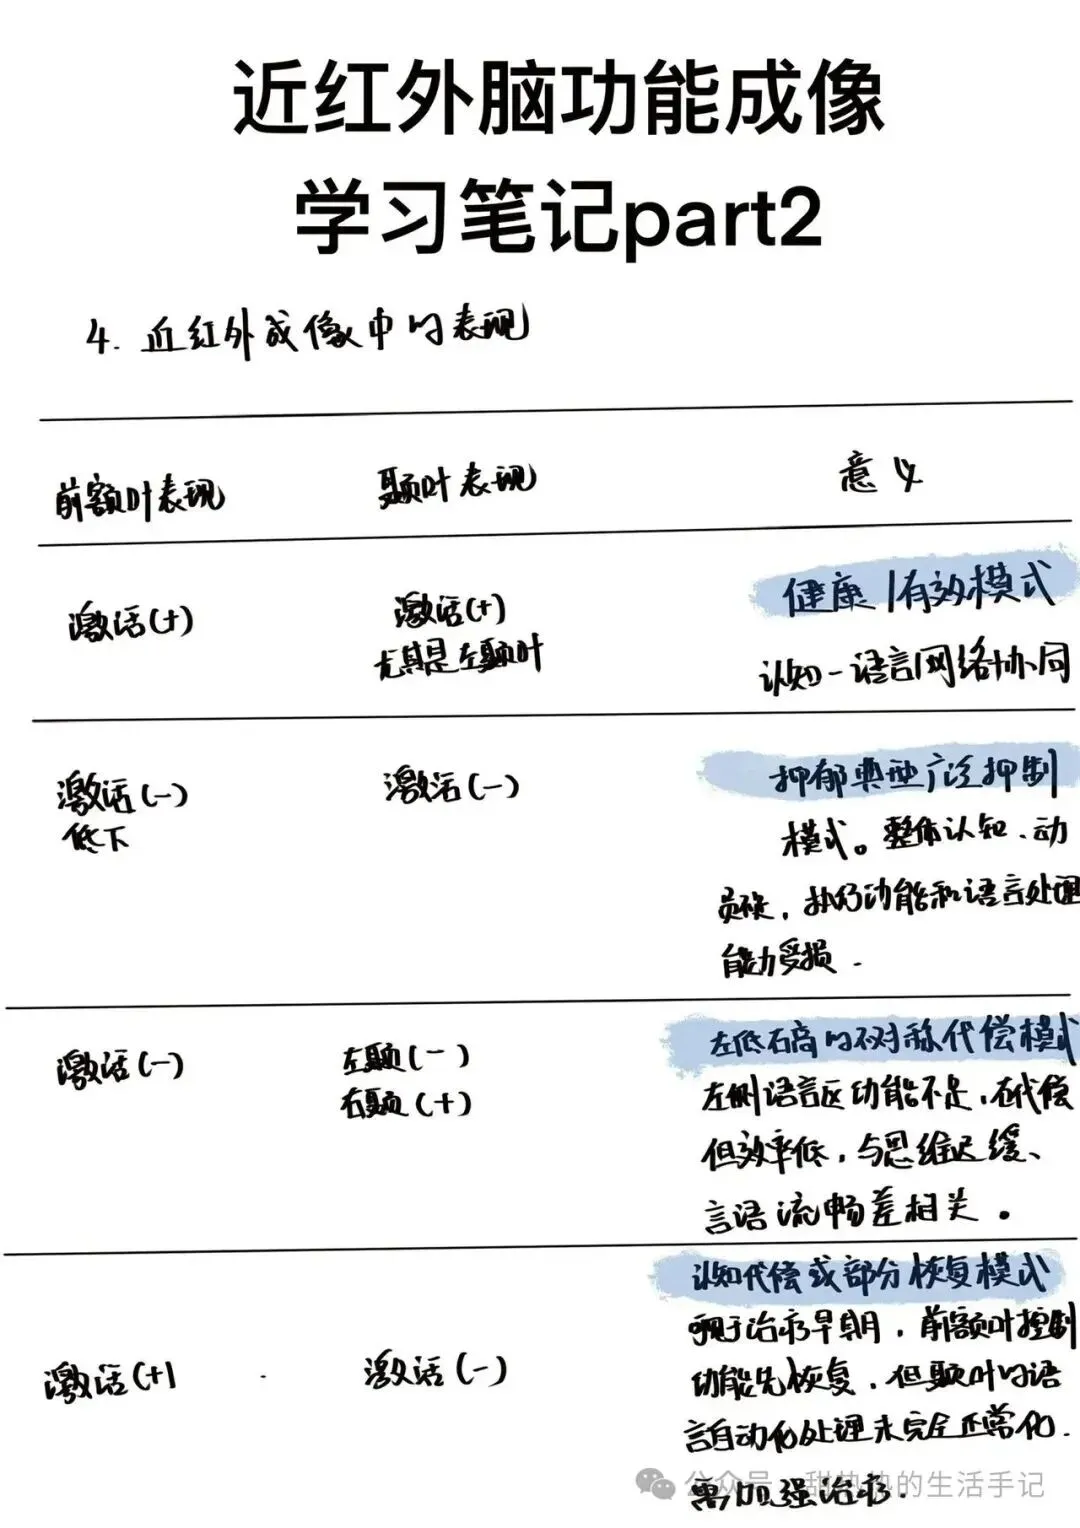 近红外脑功能成像
学习笔记part2
4. 近红外成像中的表现
前额叶表现 颞叶表现 意义
激活(+) 激活(+) 健康/有效模式
尤其是左颞叶 认知-语言网络协同
激活(-) 激活(-) 抑郁典型广泛抑制
低下 模式。整体认知、动
员难，执行功能和语言处理
能力受损.
激活(-) 左颞(-) 左低右高的不对称代偿模式
右颞(+) 左侧语言区功能不足，在代偿
但效率低，与思维迟缓、
言语流畅差相关。
认知代偿或部分恢复模式
激活(+) 激活(-) 于治疗早期，前额叶控制
功能先恢复，但颞叶的语
言自动化处理未完全正常化.
需加强治疗.
公众号 的生活手记